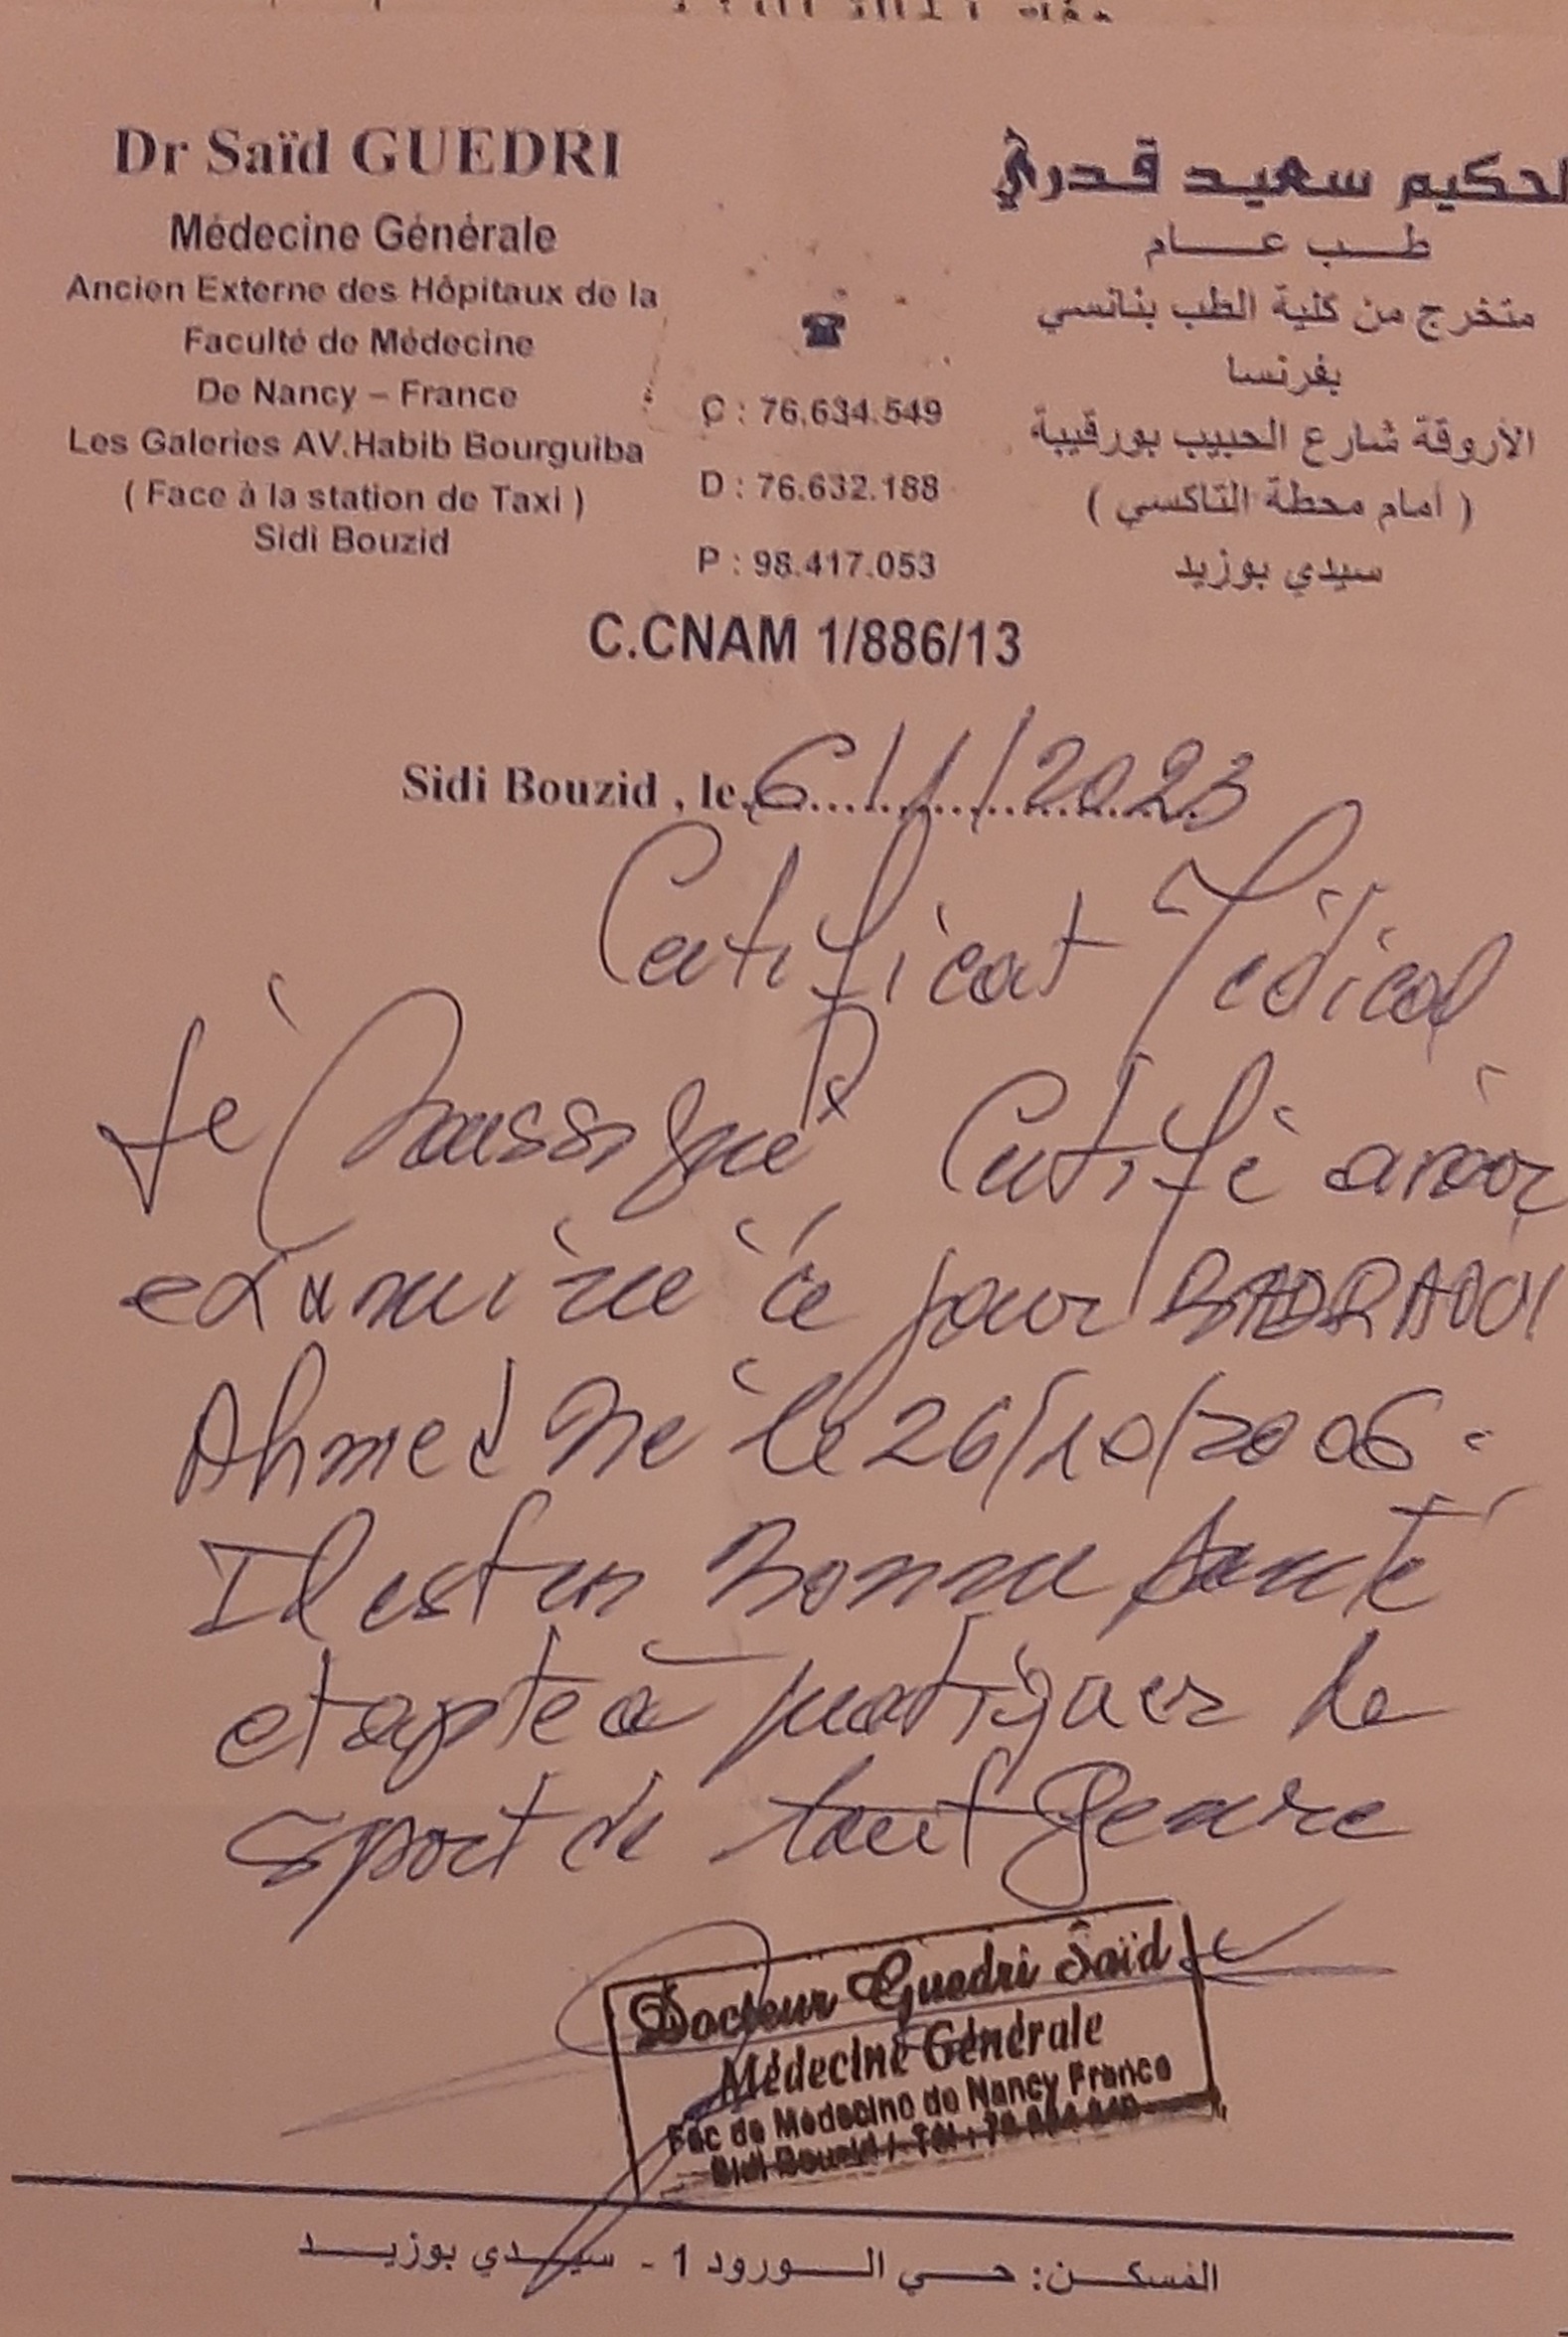 Dr Saïd GUEDRI
Médecine Générale
Ancien Externe des Hôpitaux de la
Faculté de Médecine
De Nancy – France
Les Galeries AV.Habib Bourguiba
( Face à la station de Taxi )
Sidi Bouzid
C : 76.634.549
D : 76.632.188
P : 98.417.053
لحكيم سعيد قدري
طب عام
متخرج من كلية الطب بنانسي
بفرنسا
الأروقة شارع الحبيب بورقيبة
( أمام محطة التاكسي )
سيدي بوزيد
C.CNAM 1/886/13
Sidi Bouzid , le 6/1/2023
Certificat Médical
Je soussigné certifie avoir
examiné ce jour BADRAOUI
Ahmed né le 26/10/2006.
Il est en Bonne santé
et apte à pratiquer le
sport de tout genre
Docteur Guedri Saïd
Médecine Générale
Fac de Médecine de Nancy France
Sidi Bouzid / Tél :
المسكن: حي الورود 1 - سيدي بوزيد